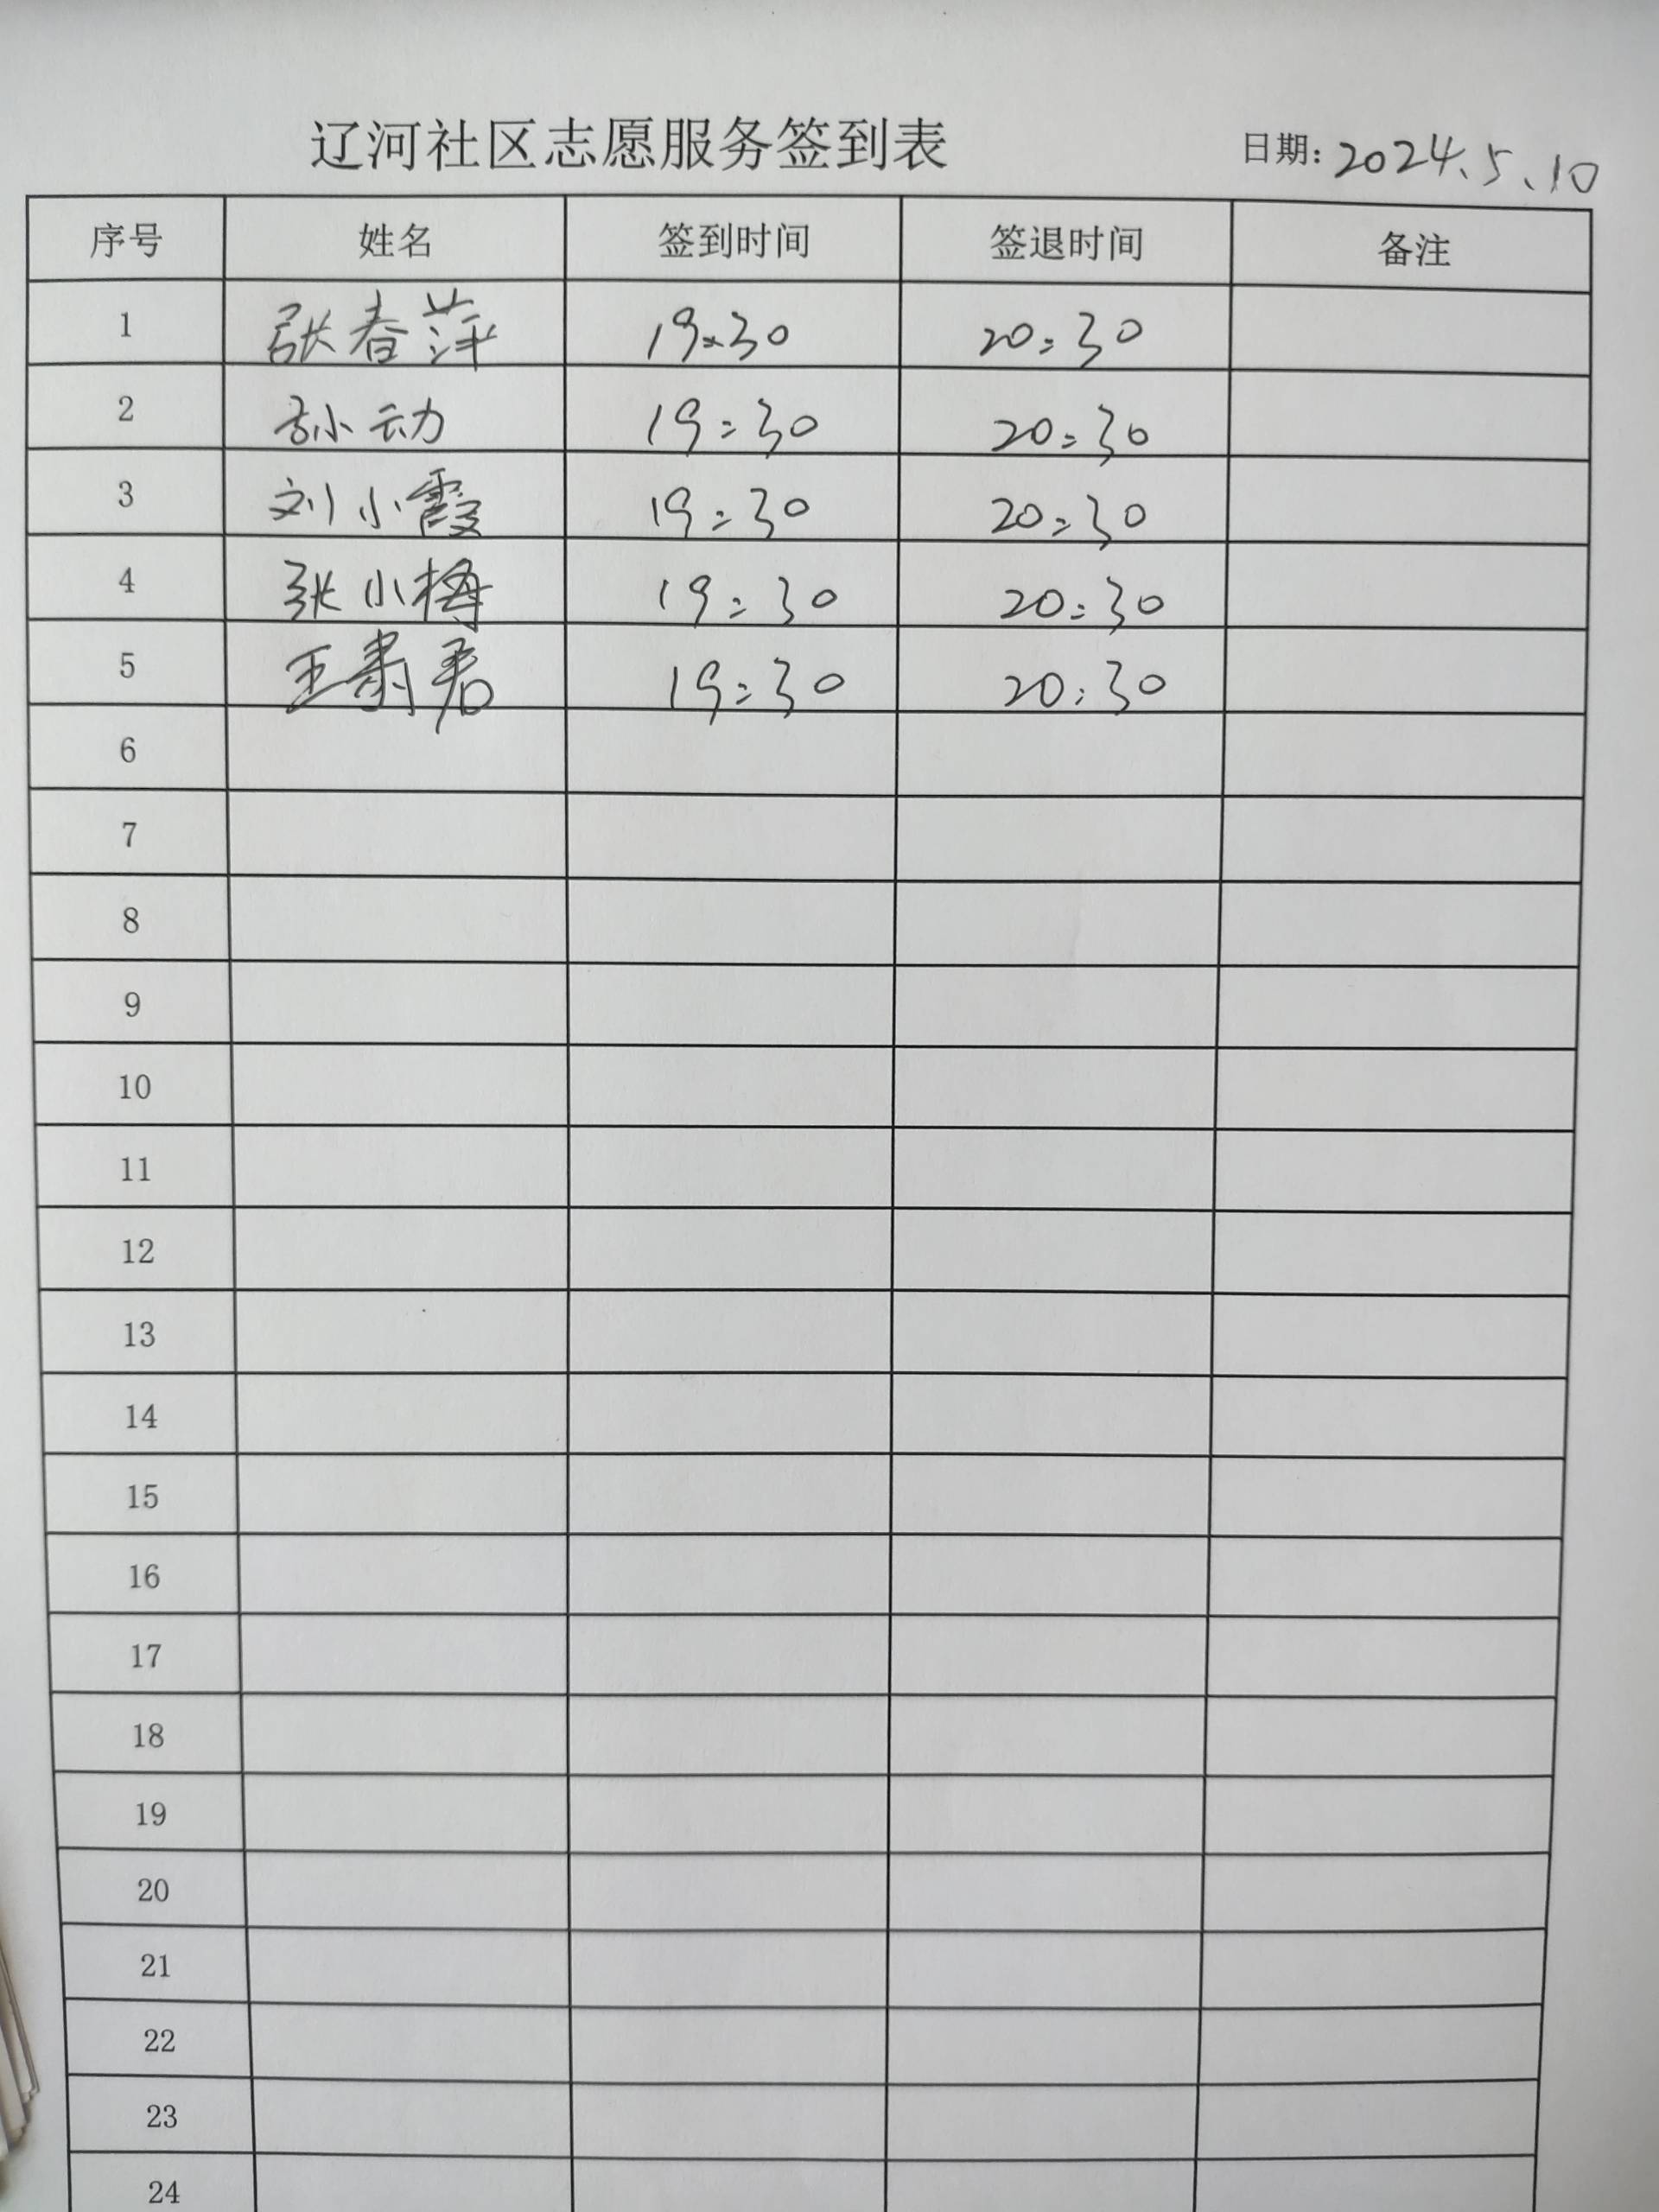 辽河社区志愿服务签到表 日期：2024.5.10
序号 姓名 签到时间 签退时间 备注
1 张春萍 19:30 20:30
2 孙动 19:30 20:30
3 刘小霞 19:30 20:30
4 张小梅 19:30 20:30
5 王 君 19:30 20:30
6
7
8
9
10
11
12
13
14
15
16
17
18
19
20
21
22
23
24